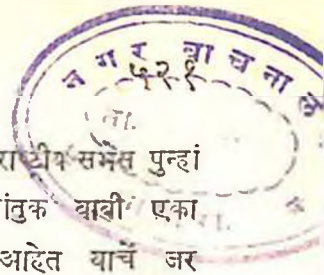 नगर वाचनाल
५२१
ता.
राष्ट्रीय सभेस पुन्हां
गंतुक बाबी एका
आहेत याचें जर